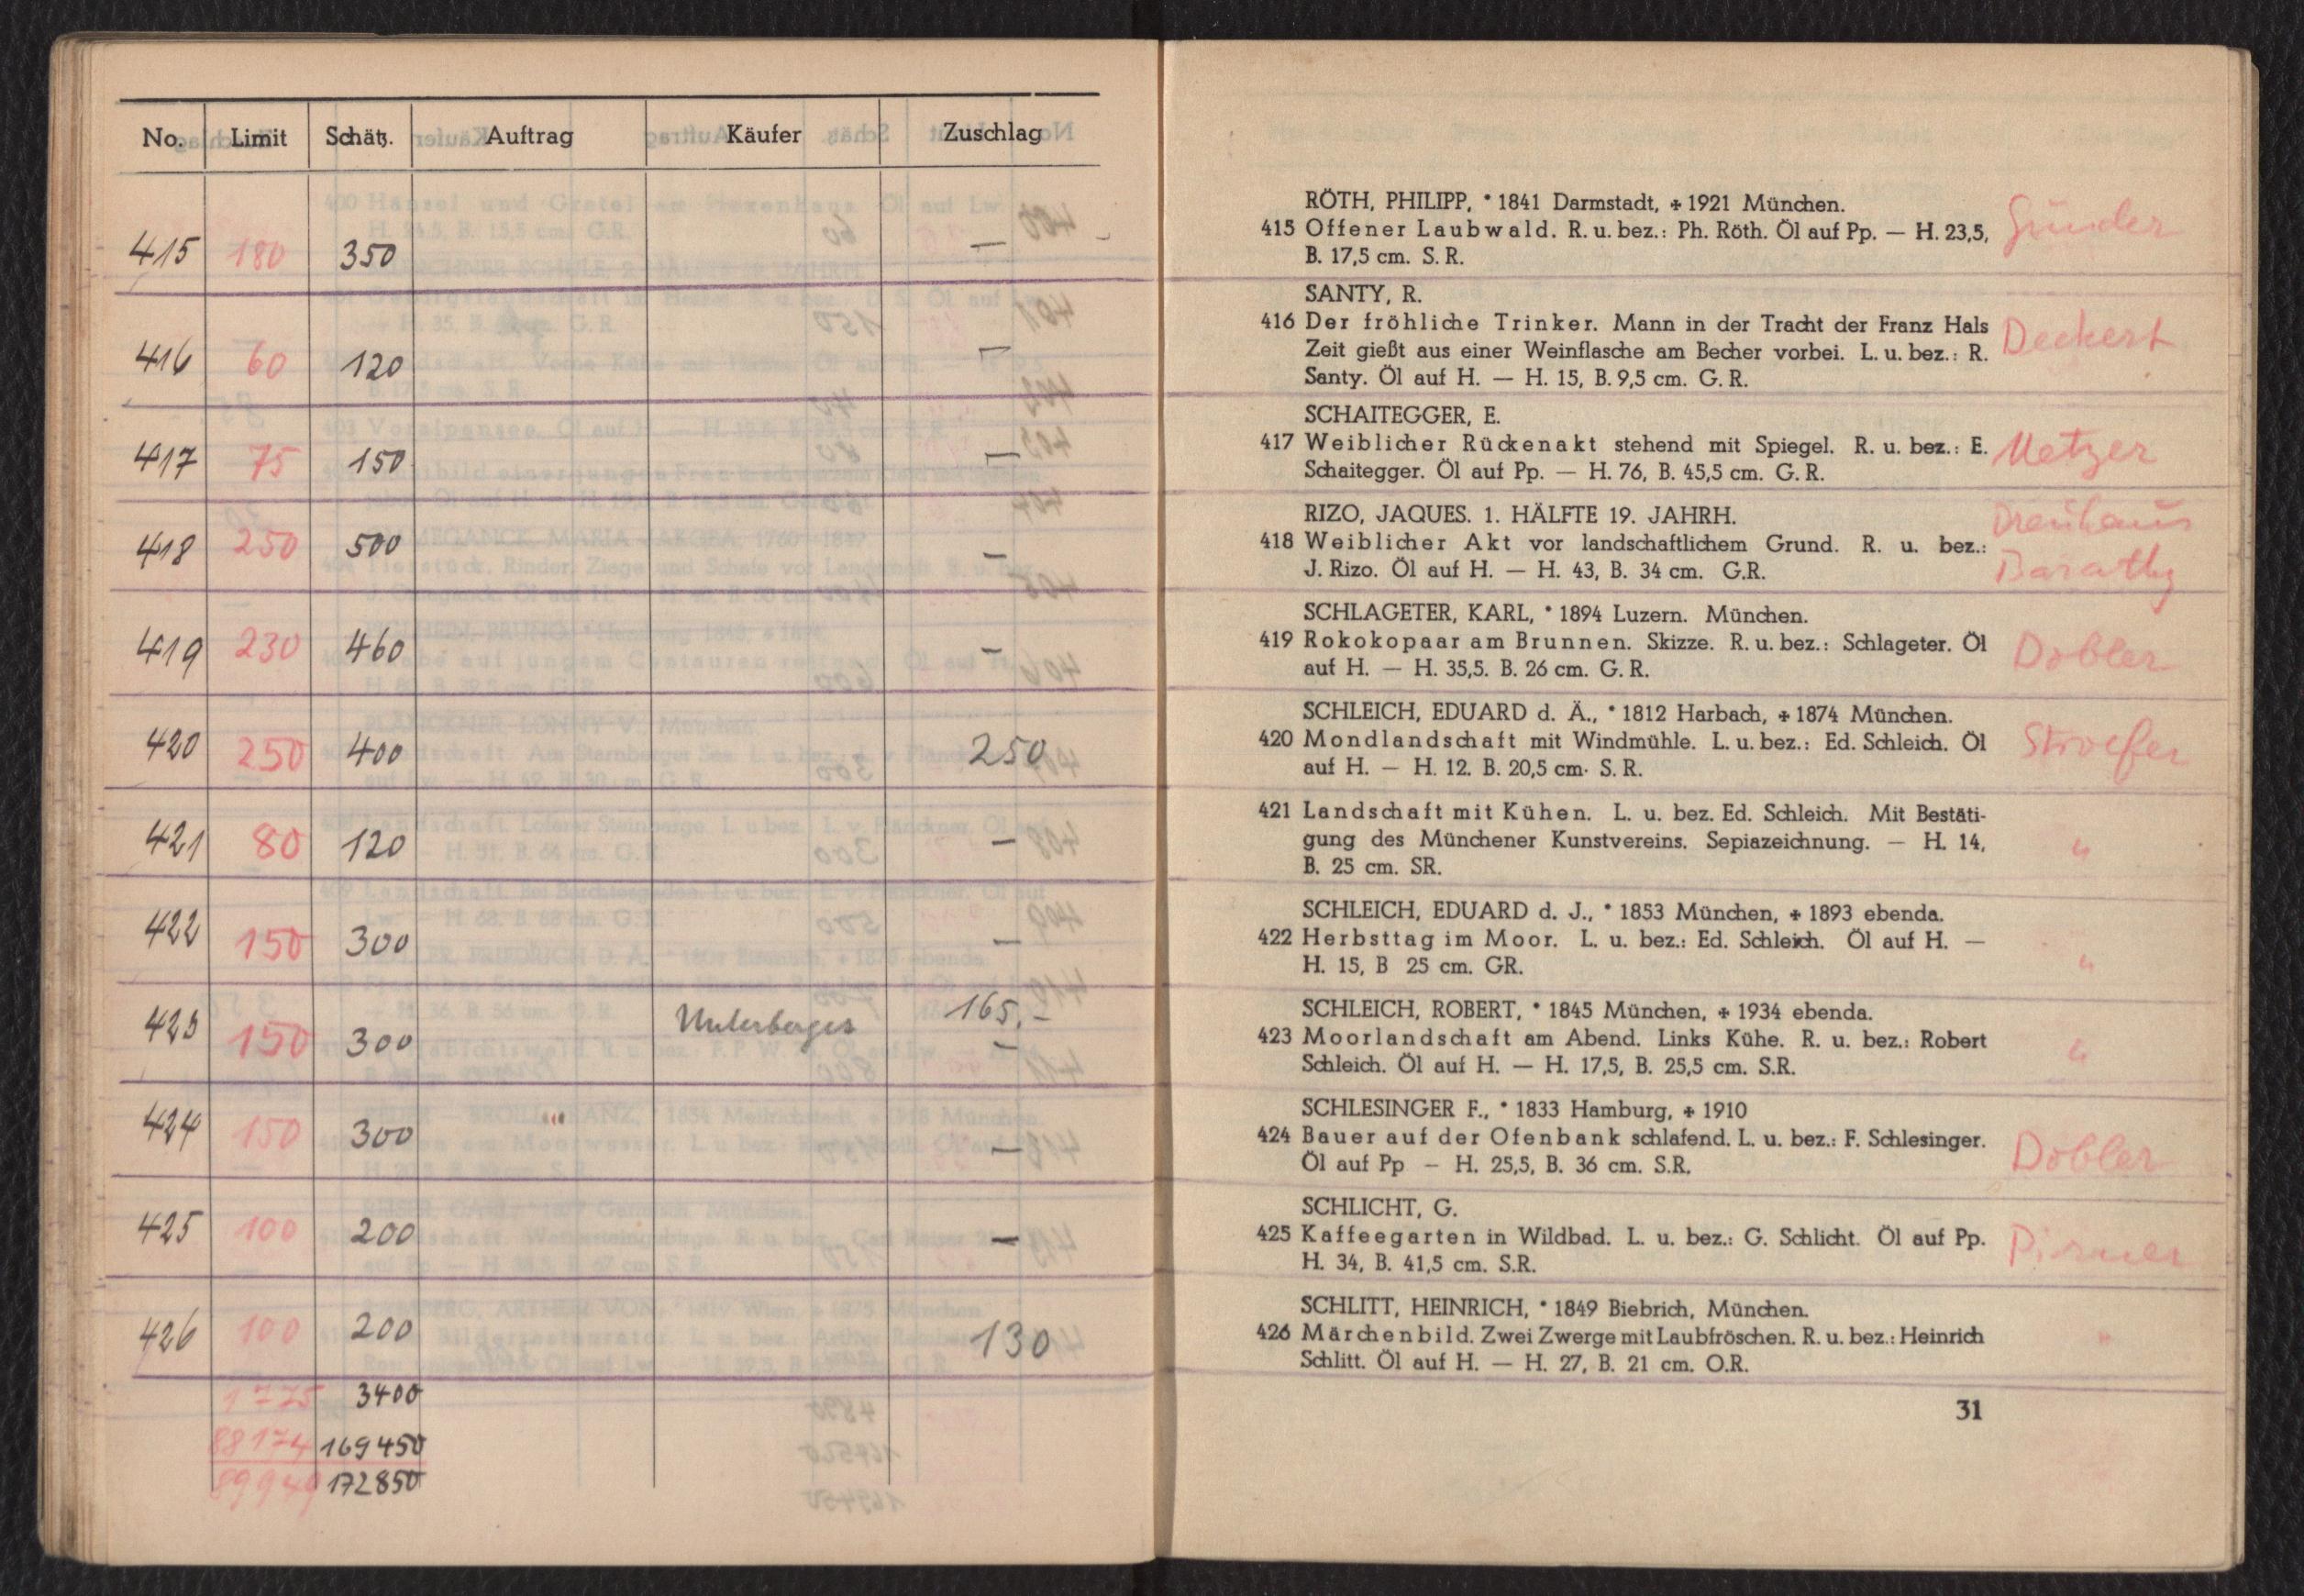 No. Limit Schätz. Auftrag Käufer Zuschlag
415 180 350 —
416 60 120 —
417 75 150 —
418 250 500 —
419 230 460 —
420 250 400 250
421 80 120 —
422 150 300 —
423 150 300 Unterberger 165.- —
424 150 300 —
425 100 200 —
426 100 200 130
1775 3400
88174 169450
89949 172850
RÖTH, PHILIPP, * 1841 Darmstadt, + 1921 München.
415 Offener Laubwald. R. u. bez.: Ph. Röth. Öl auf Pp. — H. 23,5,
B. 17,5 cm. S. R.
SANTY, R.
416 Der fröhliche Trinker. Mann in der Tracht der Franz Hals Deckert
Zeit gießt aus einer Weinflasche am Becher vorbei. L. u. bez.: R.
Santy. Öl auf H. — H. 15, B. 9,5 cm. G. R.
SCHAITEGGER, E.
417 Weiblicher Rückenakt stehend mit Spiegel. R. u. bez.: E. Metzer
Schaitegger. Öl auf Pp. — H. 76, B. 45,5 cm. G. R.
RIZO, JAQUES. 1. HÄLFTE 19. JAHRH.
418 Weiblicher Akt vor landschaftlichem Grund. R. u. bez.:
J. Rizo. Öl auf H. — H. 43, B. 34 cm. G.R. Barathy
SCHLAGETER, KARL, * 1894 Luzern. München.
419 Rokokopaar am Brunnen. Skizze. R. u. bez.: Schlageter. Öl Dobler
auf H. — H. 35,5. B. 26 cm. G. R.
SCHLEICH, EDUARD d. Ä., * 1812 Harbach, + 1874 München.
420 Mondlandschaft mit Windmühle. L. u. bez.: Ed. Schleich. Öl Stroefer
auf H. — H. 12. B. 20,5 cm. S. R.
421 Landschaft mit Kühen. L. u. bez. Ed. Schleich. Mit Bestäti-
gung des Münchener Kunstvereins. Sepiazeichnung. — H. 14, "
B. 25 cm. SR.
SCHLEICH, EDUARD d. J., * 1853 München, + 1893 ebenda.
422 Herbsttag im Moor. L. u. bez.: Ed. Schleich. Öl auf H. —
H. 15, B 25 cm. GR. "
SCHLEICH, ROBERT, * 1845 München, + 1934 ebenda.
423 Moorlandschaft am Abend. Links Kühe. R. u. bez.: Robert "
Schleich. Öl auf H. — H. 17,5, B. 25,5 cm. S.R.
SCHLESINGER F., * 1833 Hamburg, + 1910
424 Bauer auf der Ofenbank schlafend. L. u. bez.: F. Schlesinger. Dobler
Öl auf Pp — H. 25,5, B. 36 cm. S.R.
SCHLICHT, G.
425 Kaffeegarten in Wildbad. L. u. bez.: G. Schlicht. Öl auf Pp. Pirner
H. 34, B. 41,5 cm. S.R.
SCHLITT, HEINRICH, * 1849 Biebrich, München.
426 Märchenbild. Zwei Zwerge mit Laubfröschen. R. u. bez.: Heinrich "
Schlitt. Öl auf H. — H. 27, B. 21 cm. O.R.
31